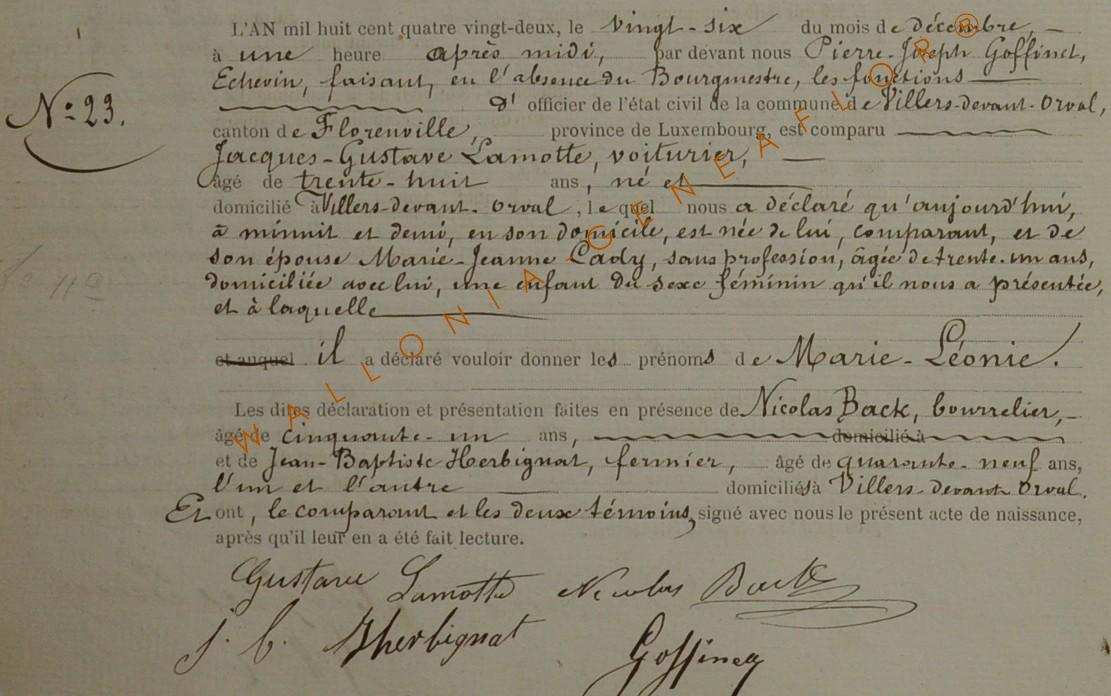 L'AN mil huit cent quatre vingt-deux, le vingt-six du mois de décembre,
à une heure après midi, par devant nous Pierre-Joseph Goffinet,
Echevin, faisant, en l'absence du Bourgmestre, les fonctions
d' officier de l'état civil de la commune de Villers-devant-Orval,
N° 23.
canton de Florenville, province de Luxembourg, est comparu
Jacques-Gustave Lamotte, voiturier,
âgé de trente-huit ans, né et
domicilié à Villers-devant-Orval, lequel nous a déclaré qu'aujourd'hui,
à minuit et demi, en son domicile, est née de lui, comparant, et de
son épouse Marie-Jeanne Lady, sans profession, âgée de trente-un ans,
domiciliée avec lui, une enfant du sexe féminin qu'il nous a présentée,
et à laquelle
et auquel il a déclaré vouloir donner les prénoms de Marie-Léonie.
Les dites déclaration et présentation faites en présence de Nicolas Back, bourrelier,
âgé de cinquante-un ans, domicilié à
et de Jean-Baptiste Herbignat, fermier, âgé de quarante-neuf ans,
l'un et l'autre domiciliés à Villers-devant-Orval.
Et ont, le comparant et les deux témoins, signé avec nous le présent acte de naissance,
après qu'il leur en a été fait lecture.
Gustave Lamotte Nicolas Back
J. B. Herbignat Goffinet
WALLONIA GENEAFLOR ®